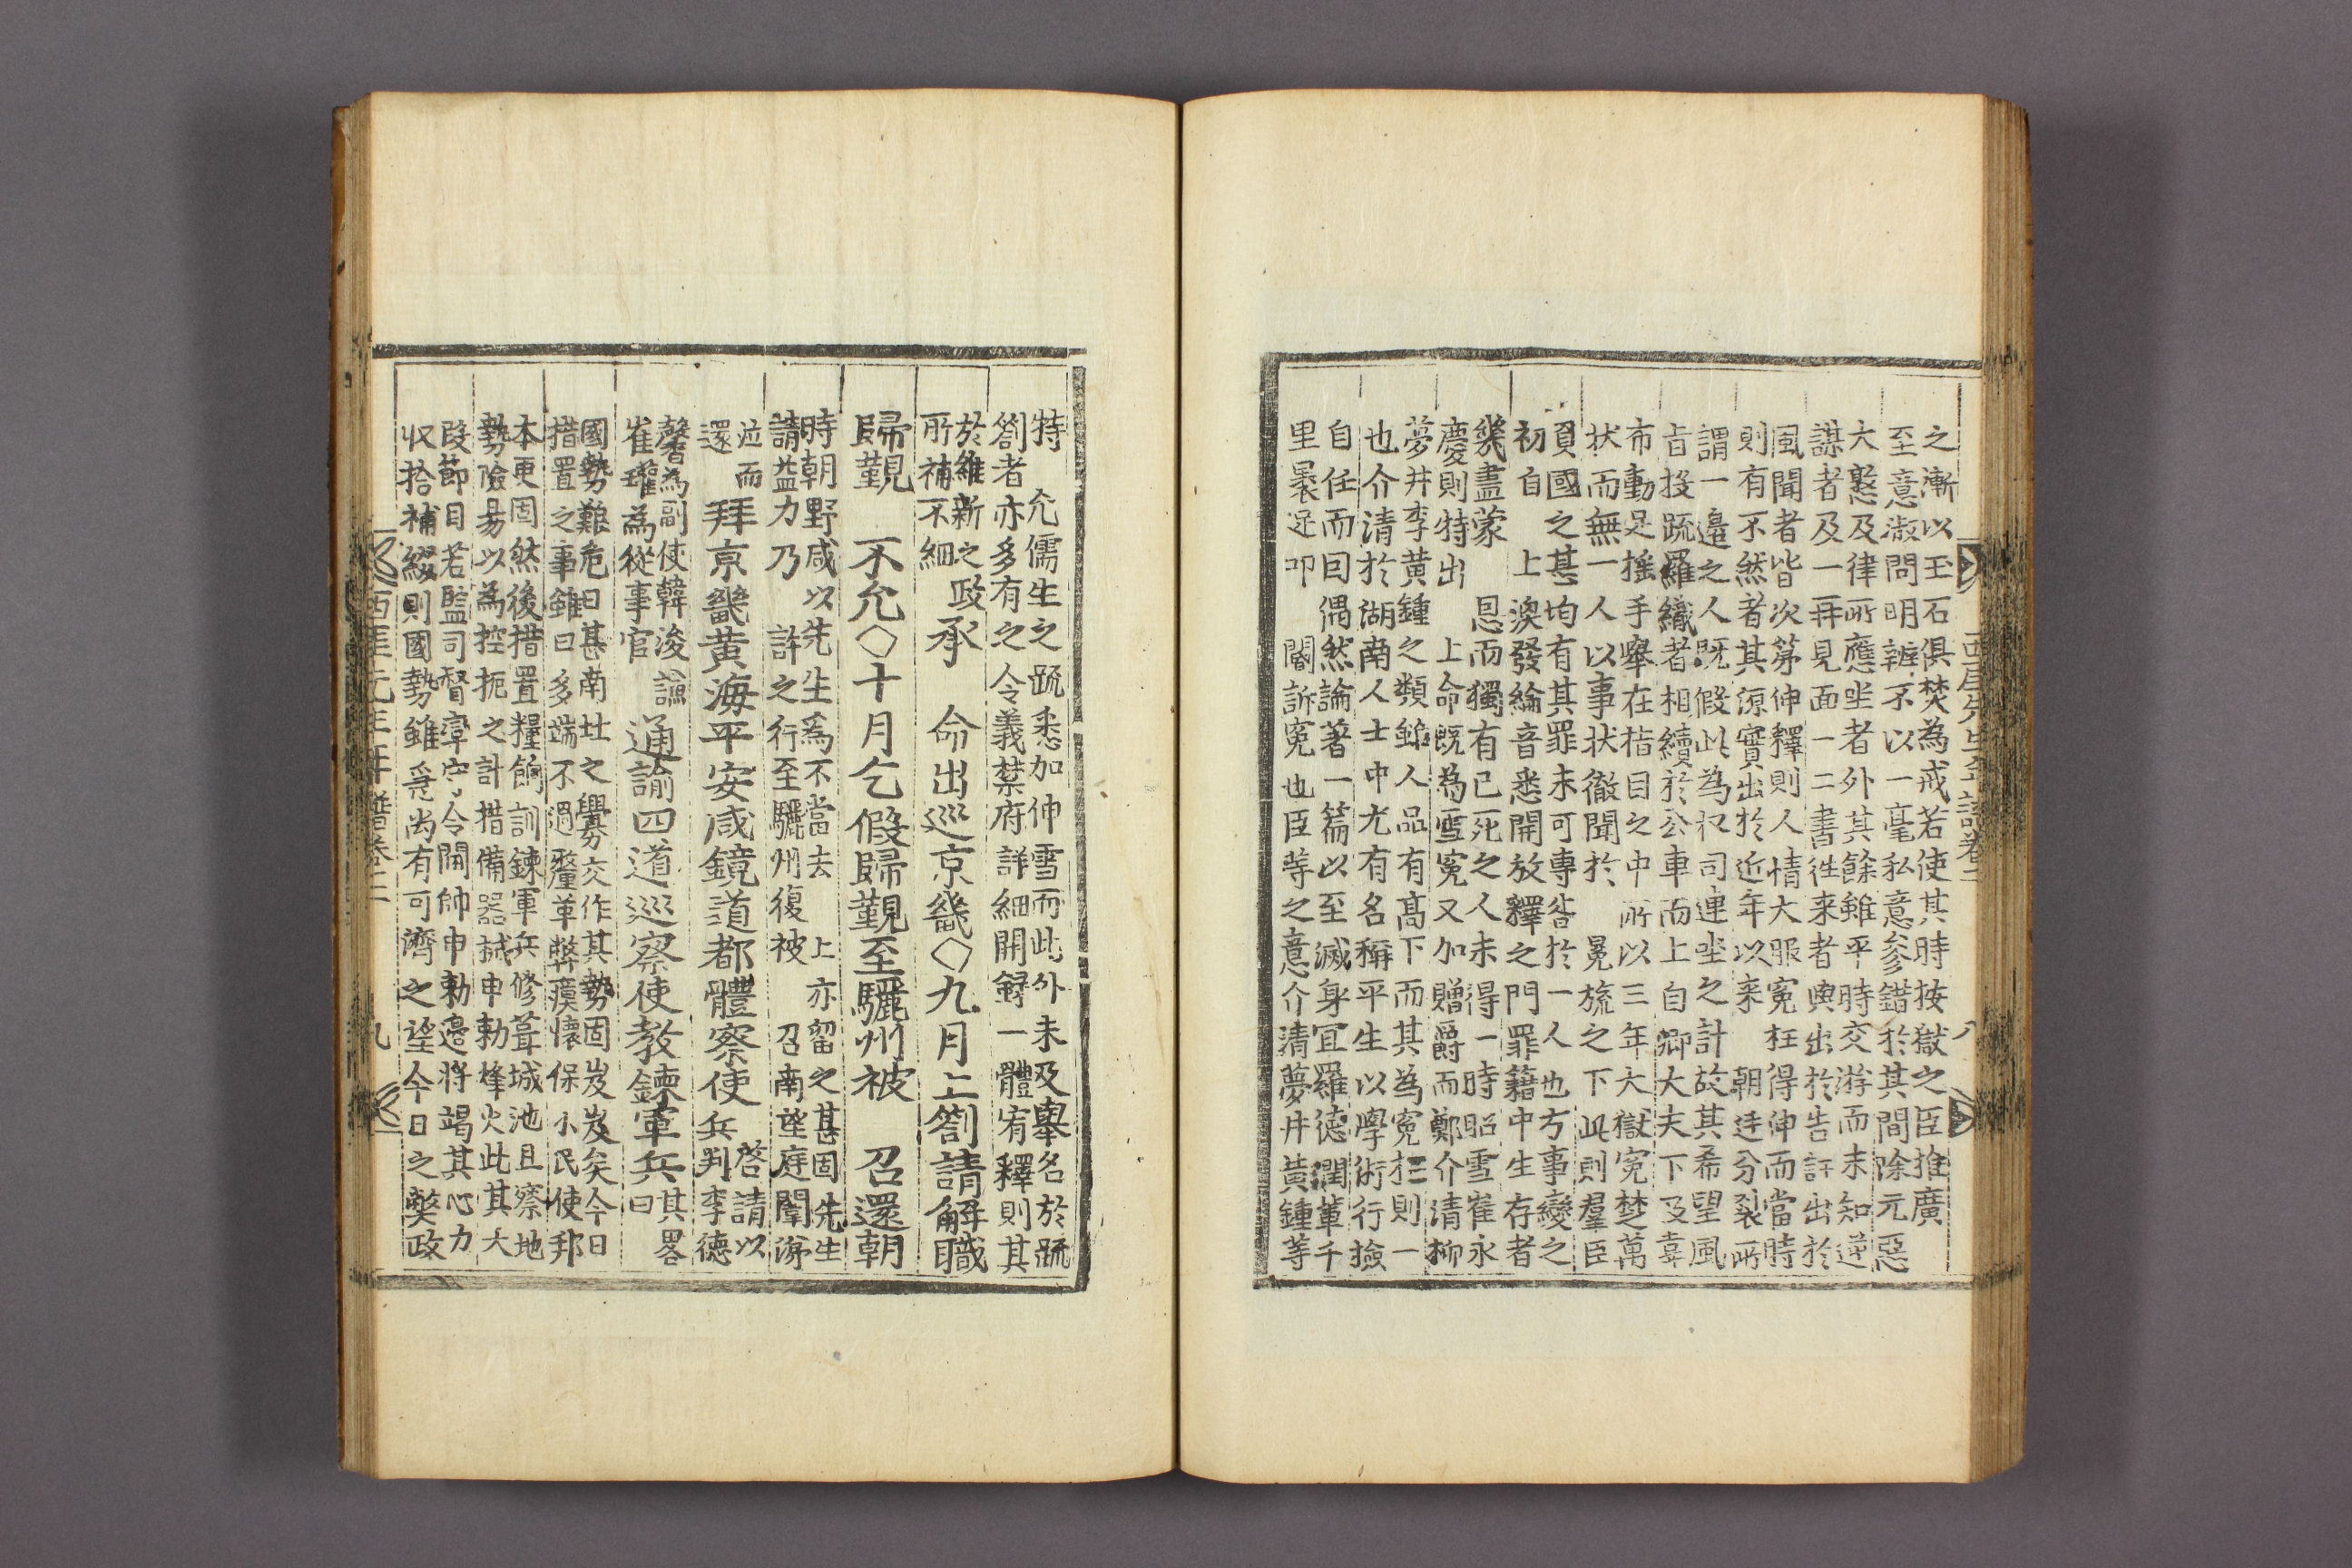 之漸以玉石俱焚為戒若使其時按獄之臣推廣
至意淑問明辨不以一毫私意參錯於其間除元惡
大憝及律所應坐者外其餘雖平時交游而未知逆
謀者及一再見面一二書徃來者與出於告訐出於
風聞者皆次第伸釋則人情大服冤枉得伸而當時
則有不然者其源實出於近年以來 朝廷分裂所
謂一邉之人既假此為杈司連坐之計故其希望風
旨投䟽羅織者相續於公車而上自卿大夫下及韋
布動足搖手舉在指目之中所以三年大獄冤楚萬
状而無一人以事状徹聞於 冕旒之下此則羣臣
負國之甚均有其罪未可專咎於一人也方事變之
初自 上渙發綸音悉開放釋之門罪籍中生存者
幾盡蒙 恩而獨有已死之人未得一時昭雪崔永
慶則特出 上命既為雪冤又加贈爵而鄭介清柳
夢井李黄鍾之類錐人品有髙下而其為冤枉則一
也介清於湖南人士中尤有名稱平生以學術行撿
自任而囙偶然論著一篇以至滅身宜羅德潤軰千
里裹足叩 閽訴冤也臣等之意介清夢井黄鍾等
西厓先生年譜卷二
八
特 允儒生之䟽悉加伸雪而此外未及舉名於䟽
劄者亦多有之令義禁府詳細開録一體宥釋則其
於維新之政
所補不細
承 命出巡京畿◇九月上劄請解職
歸觐 不允◇十月乞假歸觐至驪州被 召還朝
時朝野咸以先生爲不當去 上亦留之甚固先生
請益力乃 許之行至驪州復被 召南望庭闈㳺
泣而
還
拜京畿黄海平安咸鏡道都體察使
啓請以
兵判李德
馨為副使韓浚謙
崔瓘為從事官
通諭四道巡察使教鍊軍兵
其畧
曰
國勢難危日甚南北之釁交作其勢固岌岌矣今日
措置之事雖曰多端不過釐革弊瘼懷保小民使邦
本更固然後措置糧餉訓鍊軍兵修葺城池且察地
勢險易以為控扼之計措備器械申勅烽火此其大
段節目若監司督率守令閫帥申勅邉将竭其心力
収拾補綴則國勢雖危尚有可濟之望今日之獘政
西厓先生年譜卷二
九